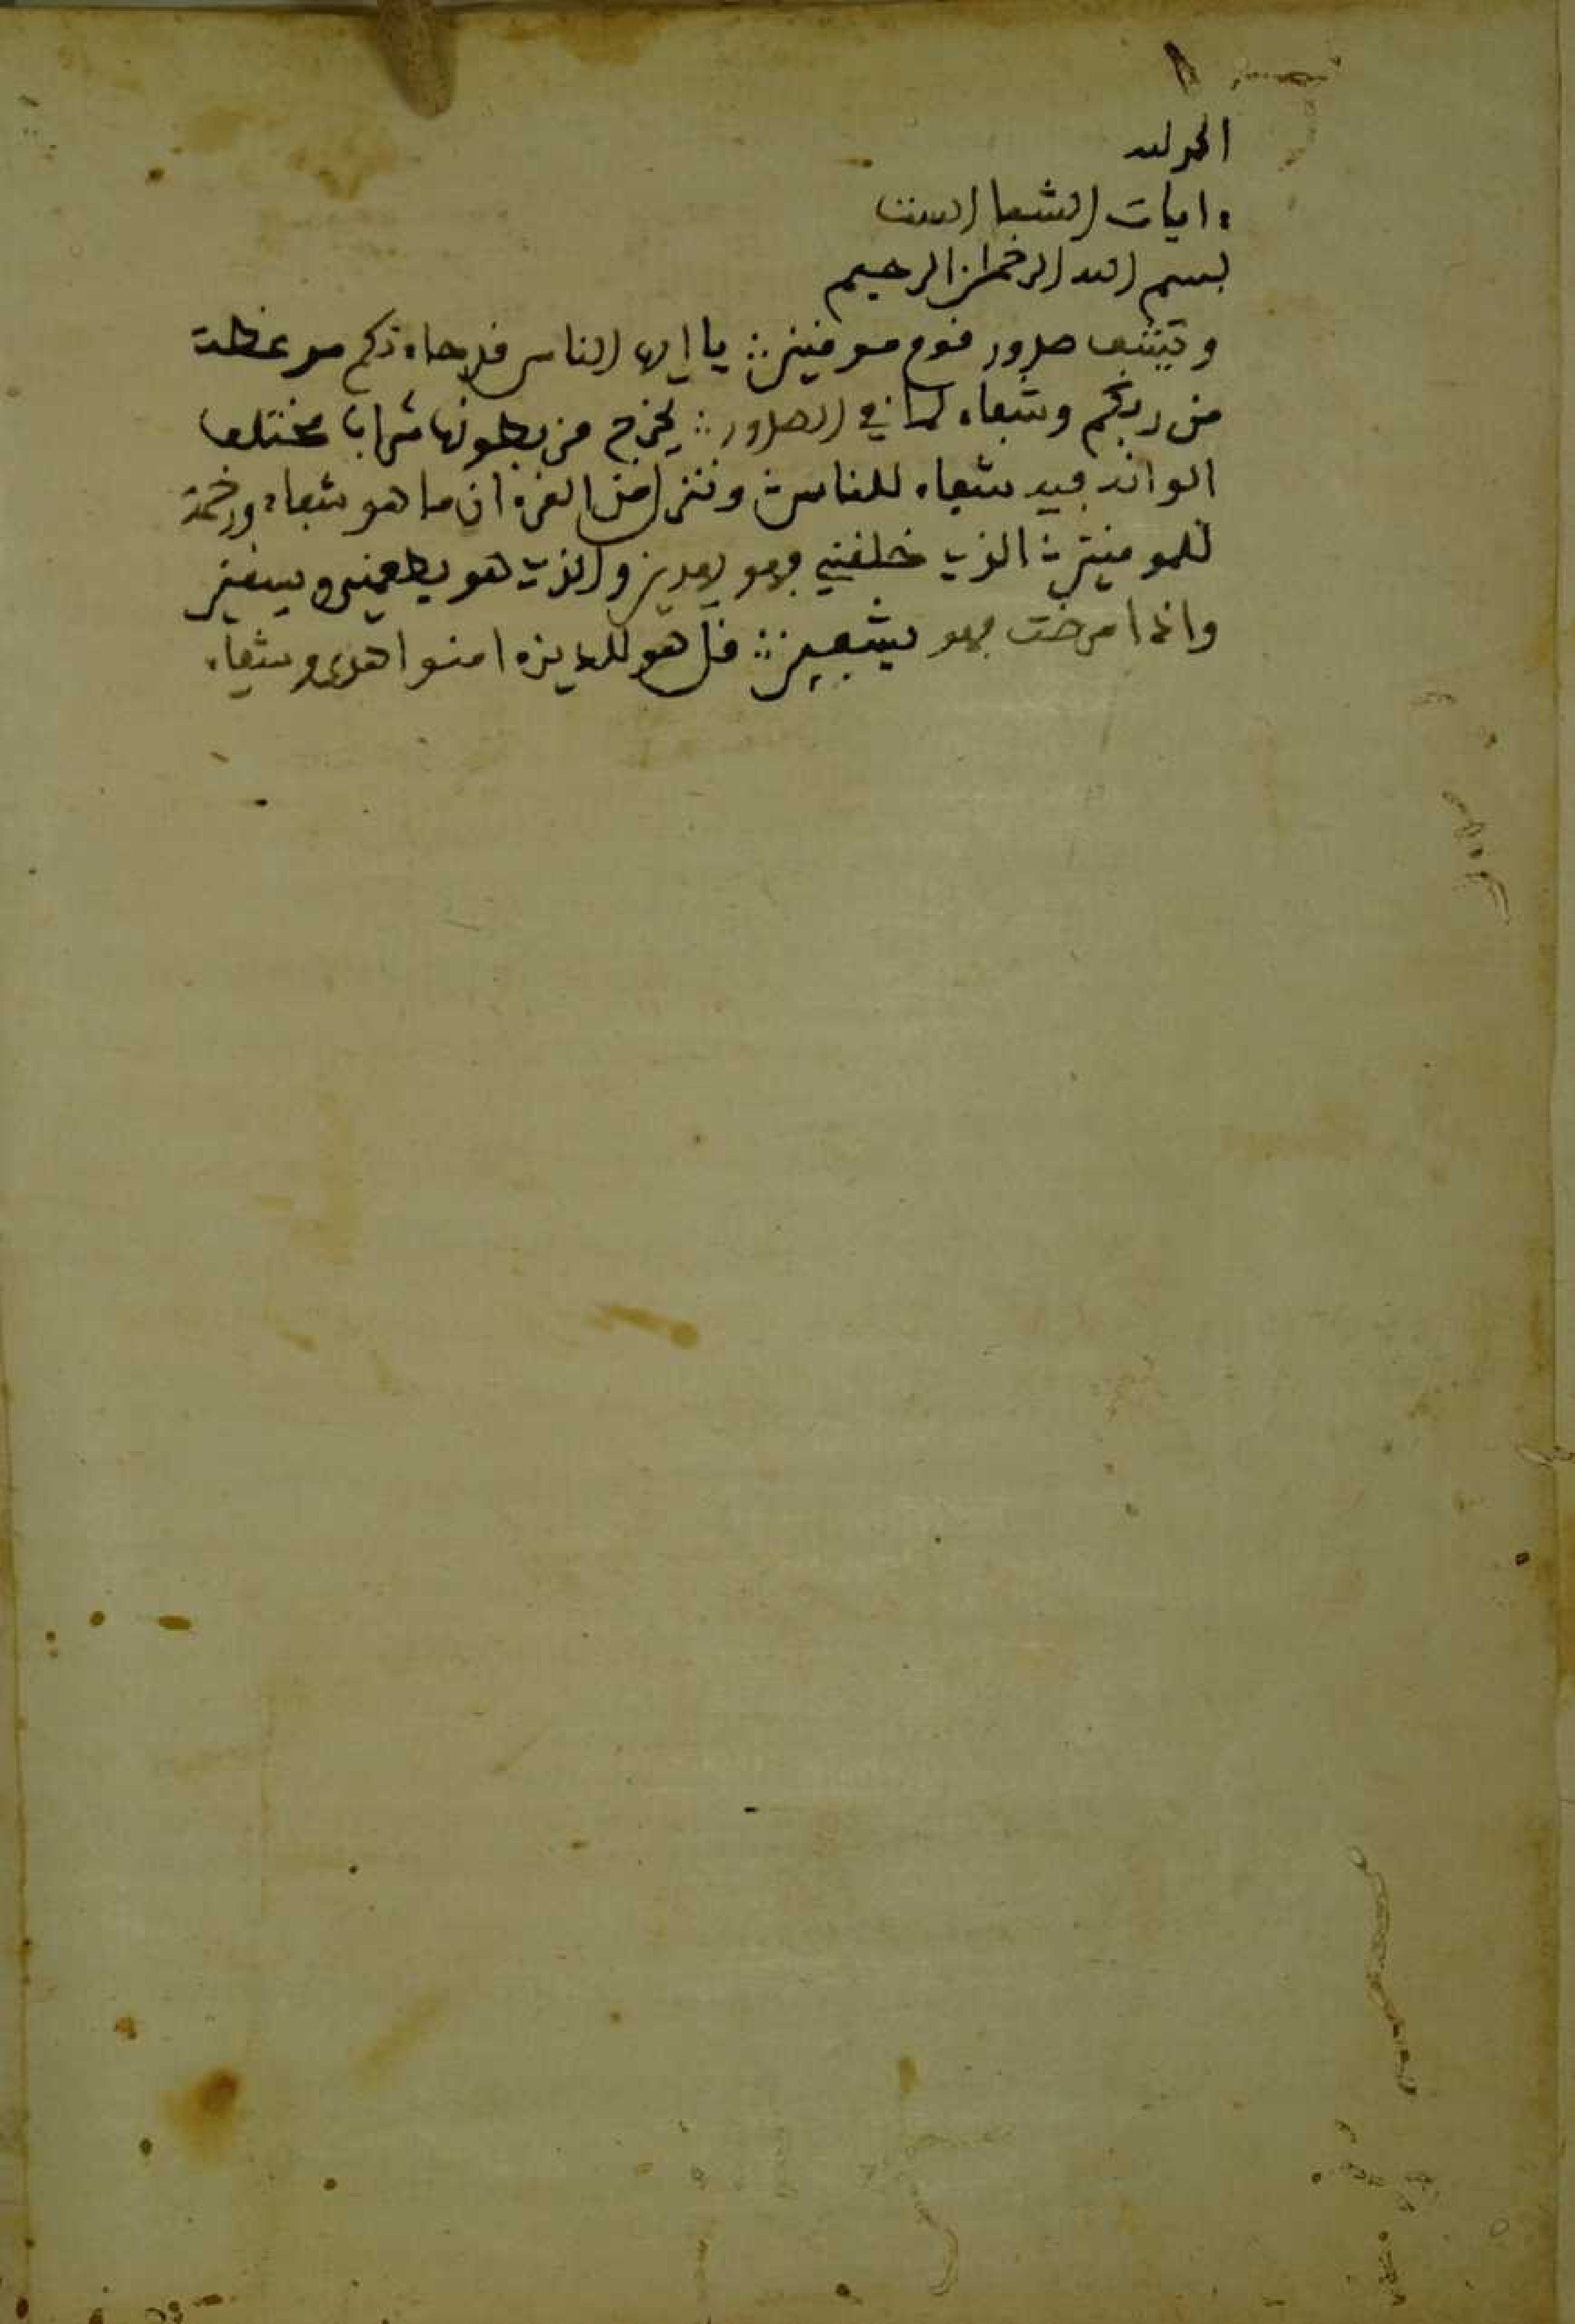 الحمد لله
ايات الشفا الست
بسم الله الرحمان الرحيم
ويشف صدور قوم مومنين ؞ يا ايها الناس قد جاءتكم موعظة
من ربكم وشفاء لما في الصدور ؞ يخرج من بطونها شرابا مختلف
الوانه فيه شفاء للناس ؞ وننزل من القرءان ما هو شفاء ورحمة
للمومنين ؞ الذي خلقني فهو يهدين والذي هو يطعمني ويسقين
واذا مرضت فهو يشفين ؞ قل هو للذين ءامنوا هدى وشفاء